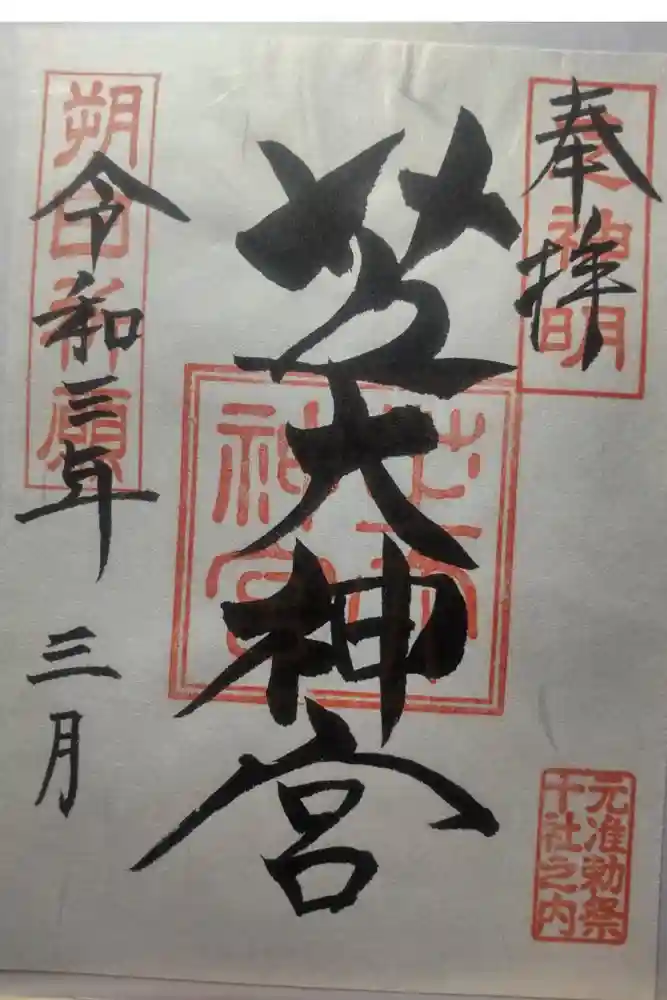 奉拝
芝神明
芝大神宮
芝大神宮
元准勅祭
十社之内
令和三年 三月
朔日祈願